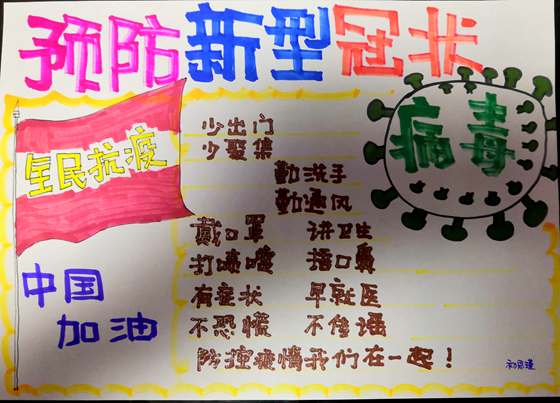 预防新型冠状
病毒
全民抗疫
少出门
少聚集
勤洗手
勤通风
戴口罩 讲卫生
打喷嚏 捂口鼻
有症状 早就医
不恐慌 不传谣
防控疫情我们在一起！
中国
加油